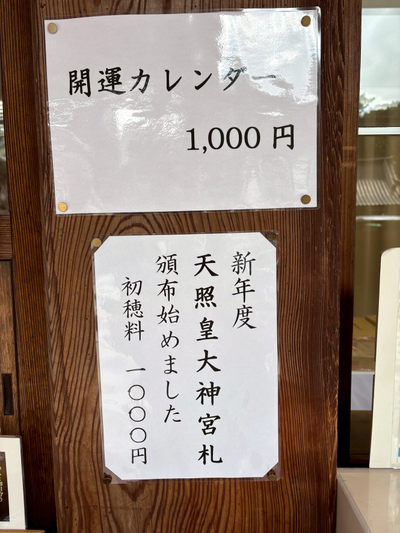 開運カレンダー
1,000円
新年度
天照皇大神宮札
頒布始めました
初穂料 一〇〇〇円